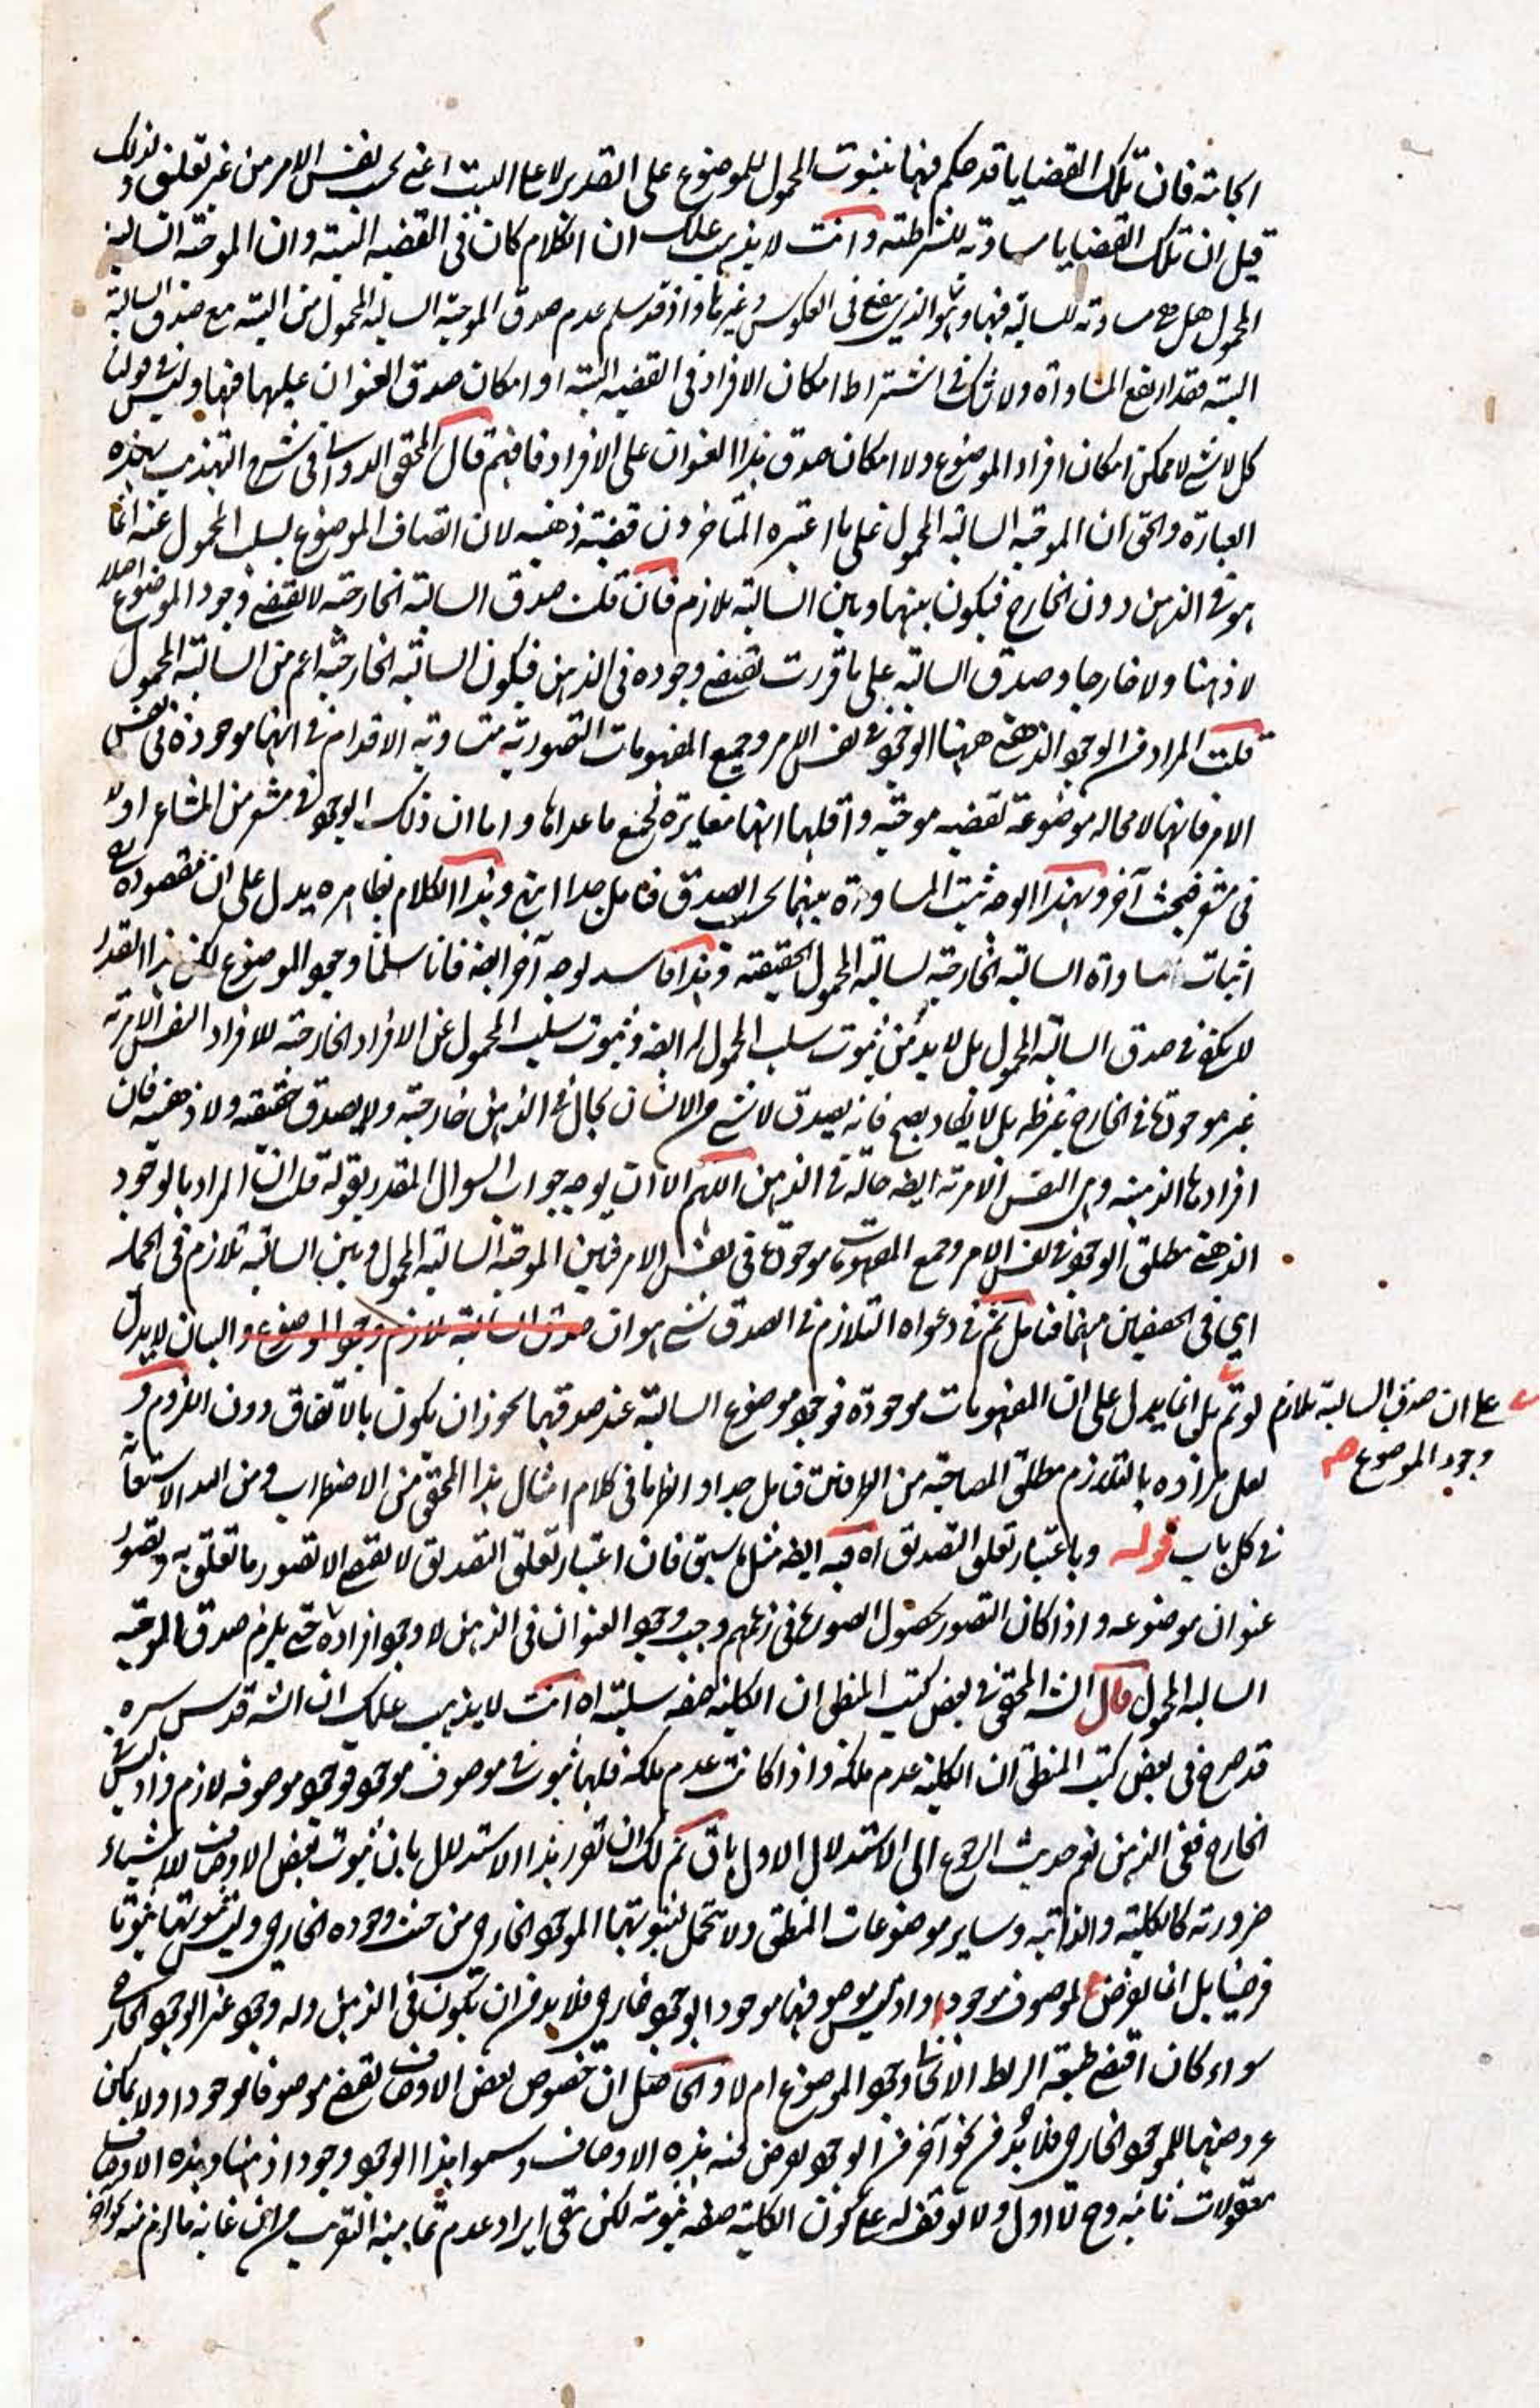 فان تلك القضايا قد حكم فيها بثبوت المحمول للموضوع على التقدير لا على البت اعنى بحسب نفس الامر من غير تعليق بذلك
قيل ان تلك القضايا مساوقة للشرطية وانت لا يذهب عليك ان الكلام كان فى القضية البتية وان الموجبة السالبة
المحمول هل هى مساوقة للسالبة فيها وهو الذى ينفع فى العكوس وغيرها واذ قد سلم عدم صدق الموجبة السالبة المحمول من البتية مع صدق السالبة
البتية فقد ارتفع المساواة ولا شك فى اشتراط امكان الافراد فى القضية البتية او امكان صدق العنوان عليهما فيها وليس فى قولنا
كل لا شئ لا ممكن امكان افراد الموضوع ولا امكان صدق هذا العنوان على الافراد فافهم قال المحقق الدوانى فى شرح التهذيب بهذه
العبارة والحق ان الموجبة السالبة المحمول على ما اعتبره المتاخرون قضية ذهنية لان اتصاف الموضوع بسلب المحمول عنه انما
هو فى الذهن دون الخارج فيكون بينها وبين السالبة تلازم فان قلت صدق السالبة الخارجية لا يقتضى وجود الموضوع اصلا
لا ذهنا ولا خارجا وصدق السالبة على ما قررت يقتضى وجوده فى الذهن فيكون السالبة الخارجية اعم من السالبة المحمول
قلت المراد من الوجود الذهنى ههنا الوجود فى نفس الامر وجميع المفهومات التصورية متساوية الاقدام فى انها موجودة فى نفس
الامر فانها لا محالة موضوعة لقضية موجبة واقلها انها مغايرة لجميع ما عداها واما ان ذلك الوجود فى مشعر من المشاعر اولا
فى مشعر فبحث آخر وبهذا الوجه يثبت المساواة بينهما بحسب الصدق فتامل جدا انتهى وهذا الكلام بظاهره يدل على ان مقصوده
اثبات مساواة السالبة الخارجية لسالبة المحمول الحقيقية وهذا فاسد لوجه آخر ايضا فانا سلمنا وجود الموضوع لكن هذا القدر
لا يكفى فى صدق السالبة المحمول بل لا بد من ثبوت سلب المحمول له ايضا وثبوت سلب المحمول عن الافراد الخارجية للافراد النفس الامرية
غير موجودها فى الخارج غير ظاهر بل لا يكاد يصح فانه يصدق لا شئ من الانسان بحال فى الذهن خارجية ولا يصدق حقيقية ولا ذهنية فان
افرادها الذهنية وهى النفس الامرية ايضا حالة فى الذهن اللهم الا ان يوجه جواب السوال المقدر بقوله قلت ان المراد بالوجود
الذهنى مطلق الوجود فى نفس الامر وجميع المفهومات موجودة فى نفس الامر فبين الموجبة السالبة المحمول وبين السالبة تلازم فى الجملة
اى فى منهما فتامل ثم فى دعواه التلازم فى الصدق شئ هو ان صدق السالبة تلازم وجود الموضوع والبيان لا يدل
على ان صدق السالبة تلازم وجود الموضوع
لو تم بل انما يدل على ان المفهومات موجودة فوجود موضوع السالبة عند صدقها يجوز ان يكون بالاتفاق دون اللزوم و
لعل مراده بالتلازم مطلق المصاحبة من الطرفين فتامل جدا وانظر ما فى كلام امثال هذا المحقق من الاضطراب ومن الله الاستعانة
فى كل باب قوله وباعتبار تعلق التصديق اه فيه ايضا مثل ما سبق فان اعتبار تعلق التصديق لا يقتضى الا تصور ما تعلق به وتصور
عنوان موضوعه واذا كان التصور بحصول الصورة فى زعمهم وجب وجود العنوان فى الذهن لا وجود افراده حتى يلزم صدق الموجبة
السالبة المحمول قال الش المحقق فى بعض كتب المنطق ان الكلية صفة سلبية اه انت لا يذهب عليك ان الش قدس سره
قد صرح فى بعض كتب المنطق ان الكلية عدم ملكة واذا كانت عدم ملكة فلها ثبوت فى موصوف موجود فوجود موصوفه لازم واذ ليس فى
الخارج ففى الذهن نعم حديث الرجوع الى الاستدلال الاول باق ثم لك ان تقرر هذا الاستدلال بان ثبوت بعض الاوصاف للاشياء
ضرورية كالكلية والذاتية وساير موضوعات المنطق ولا تحمل لثبوتها الموجود الخارجى من حيث وجوده الخارجى وليس ثبوتها ثبوتا
فرضيا بل انما يعرض لموصوف موجود واذ ليس موصوفها موجودا بوجود خارجى فلا بد من ان يكون فى الذهن وله وجود غير الوجود الخارجى
سواء كان اقتضى طبيعة الربط الايجابى وجود الموضوع ام لا والحاصل ان خصوص بعض الاوصاف يقتضى موصوفا موجودا ولا يمكن
عروضها للموجود الخارجى فلا بد من نحو آخر من الوجود يعرض له هذه الاوصاف وسموا هذا الوجود وجودا ذهنيا وهذه الاوصاف
معقولات ثانية وح لا اول ولا توقف له على كون الكلية صفة ثبوتية لكن بقى ايراد عدم تمامية التقريب فان غاية ما لزم منه